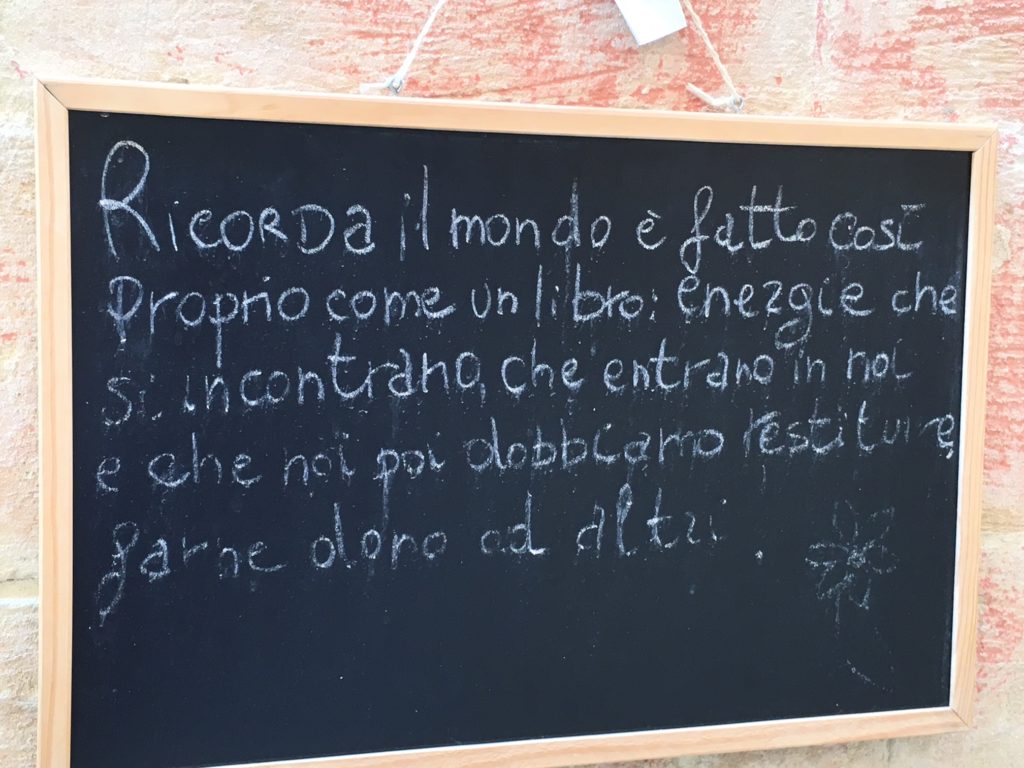 Ricorda il mondo è fatto così
Proprio come un libro: energie che
si incontrano, che entrano in noi
e che noi poi dobbiamo restituire,
farne dono ad altri.